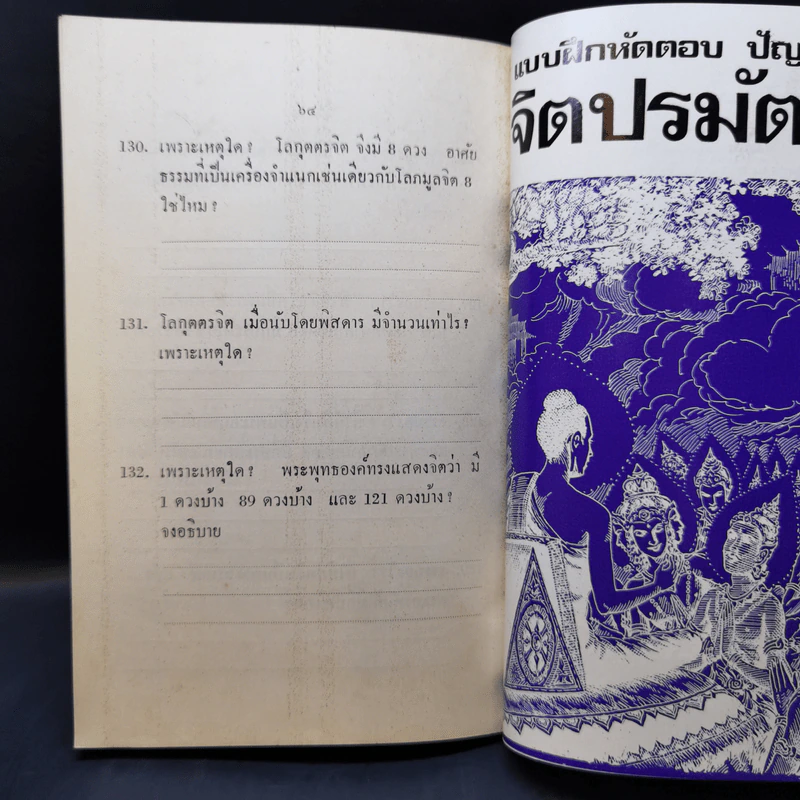 ๖๔
130. เพราะเหตุใด? โลกุตตรจิต จึงมี 8 ดวง อาศัย
ธรรมที่เป็นเครื่องจำแนกเช่นเดียวกับโลภมูลจิต 8
ใช่ไหม?
131. โลกุตตรจิต เมื่อนับโดยพิสดาร มีจำนวนเท่าไร?
เพราะเหตุใด?
132. เพราะเหตุใด? พระพุทธองค์ทรงแสดงจิตว่า มี
1 ดวงบ้าง 89 ดวงบ้าง และ 121 ดวงบ้าง?
จงอธิบาย
แบบฝึกหัดตอบ ปัญ
จิตปรมัต